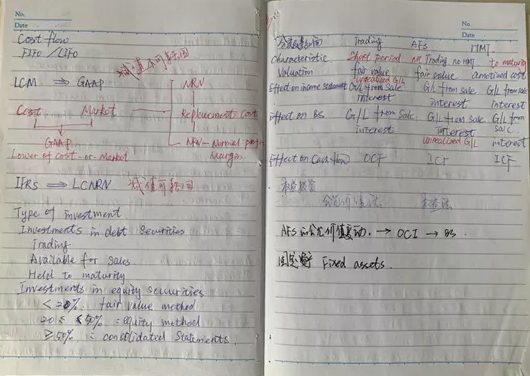 No.
Date
Cost flow
FIFO / LIFO
减值可转回
LCM ⇒ GAAP
NRV
Cost Market
Replacement cost
GAAP
NRV - Normal profit
Margin
Lower of cost or Market
IFRS ⇒ LCNRV 减值可转回
Type of investment
Investments in debt Securities
Trading
Available for sales
Held to maturity
Investments in equity securities
< 20% fair value method
20% ≤ 50% = equity method
≥50% = consolidated statements
No.
Date
Trading AFS HTM
Characteristic Short period not Trading no HTM to maturity
Valuation fair value fair value amotized cost
unrealized G/L
Effect on income statement G/L from Sale G/L from Sale G/L from
Interest interest sale
Interest
Effect on BS G/L from Sale G/L from Sale G/L from
Interest Interest sale
unrealized G/L interest
Effect on Cash flow OCF ICF ICF
AFS 公允价值变动 → OCI → BS.
固定资产 Fixed assets.